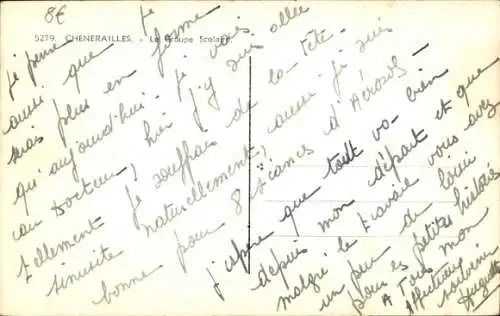 8€
5279. CHENERAILLES. - Le Groupe Scolaire.
Je pense que je
serais plus en forme
qu'aujourd'hui. Je vais
au Docteur, hier j'y suis allée
tellement je souffrais de la tête.
sinusite naturellement, aussi je suis
bonne pour 8 séances d'Aérosol-
J'espère que tout va bien
depuis mon départ et que
malgré le travail vous avez
un peu de loisir
pour les petites histoires
A Tous mon
affectueux souvenir
Huguette